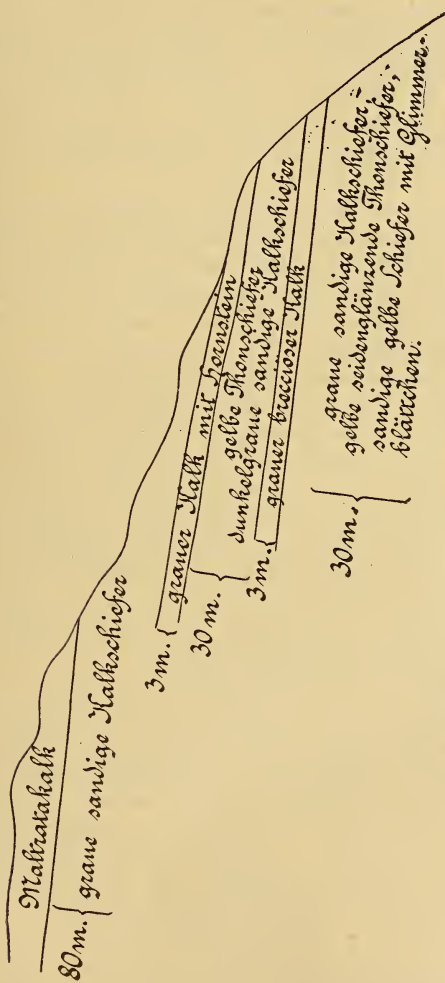 Maltratakalk
80 m. { graue sandige Kalkschiefer
3 m. { grauer Kalk mit Hornstein
30 m. { gelbe Thonschiefer
dunkelgraue sandige Kalkschiefer
3 m. { grauer breccioser Kalk
30 m. { graue sandige Kalkschiefer,-
gelbe seidenglänzende Thonschiefer,-
sandige gelbe Schiefer mit Glimmer-
blättchen.